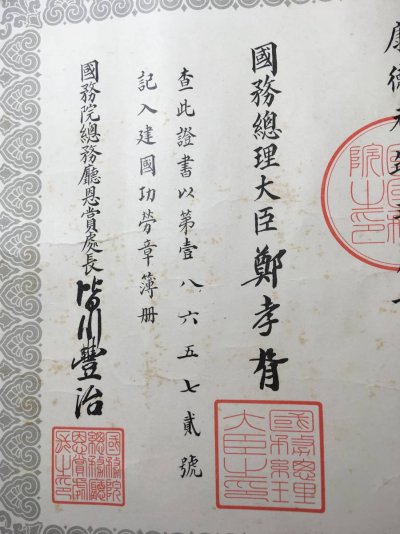 康德元年三月一
國務總理大臣 鄭孝胥
國務總理大臣之印
查此證書以第壹八六五七貳號
記入建國功勞章簿册
國務院總務廳恩賞處長 皆川豐治
國務院總務廳恩賞處長之印